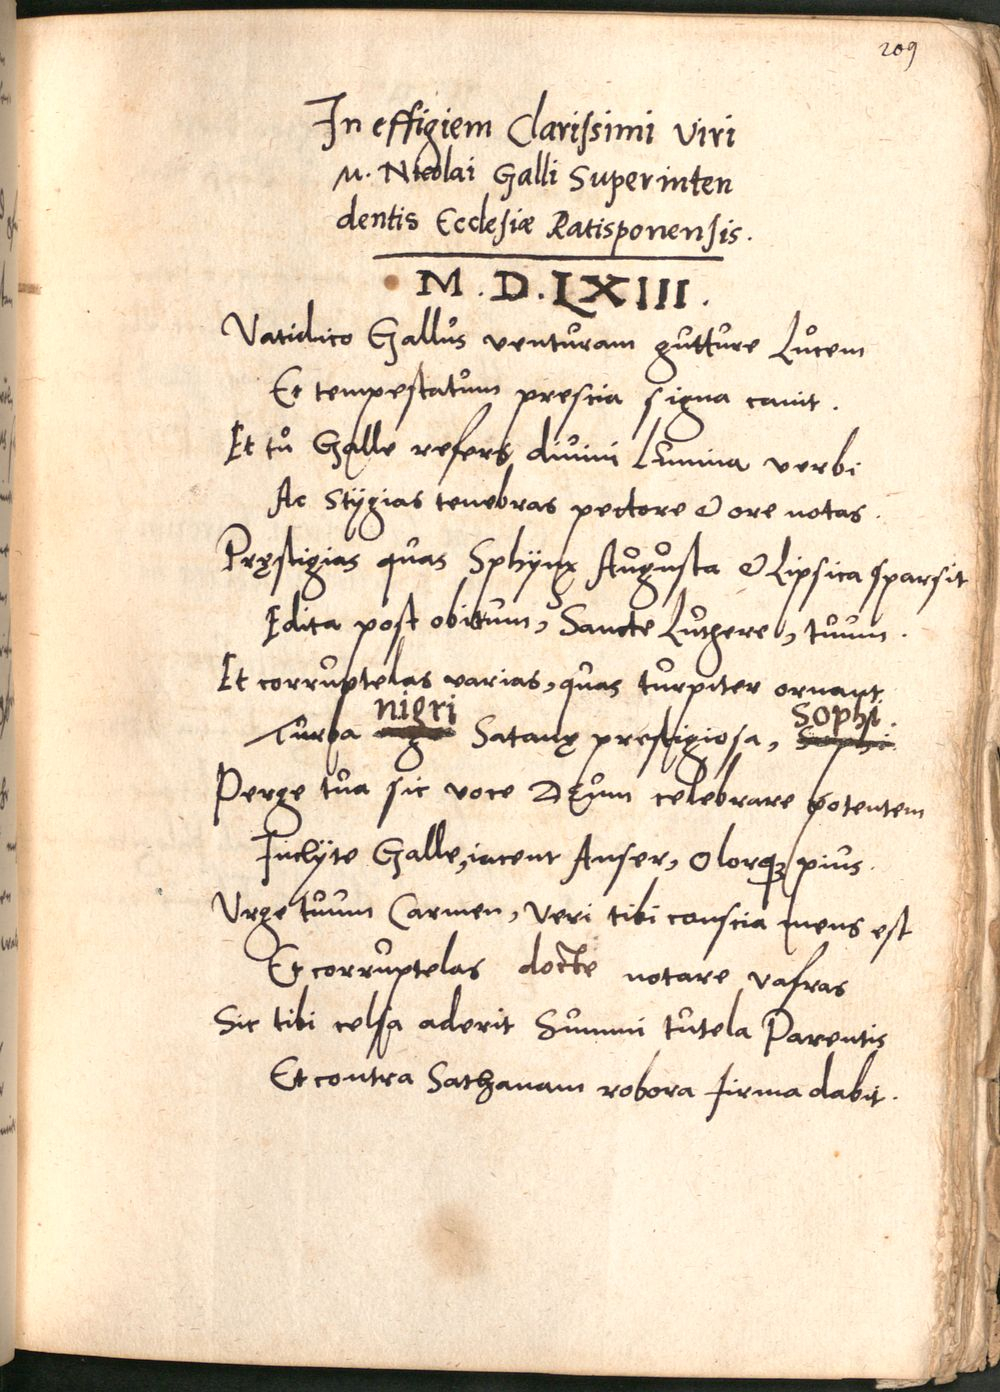 209
In effigiem Clarissimi Viri
M. Nicolai Galli Superinten
dentis Ecclesiæ Ratisponensis.
M.D.LXIII.
Vatidico Gallus venturam gutture Lucem
Et tempestatum prescia signa canit.
Et tu Galle refers diuini Lumina verbi
Ac Stygias tenebras pectore & ore notas.
Pręstigias quas Sphynx Augusta & Lipsica sparsit
Edita post obitum, Sancte Luthere, tuum.
Et corruptelas varias, quas turpiter ornant
nigri Sophi.
Turba Satanę prestigiosa, Sophi.
Perge tua sic voce Deum celebrare potentem
Inclyte Galle, iacent Anser, Olorq3 pius.
Urge tuum Carmen, Veri tibi conscia mens est
Et corruptelas docte notare vafras
Sic tibi celsa aderit Summi tutela Parentis
Et contra Sathanam robora firma dabit.